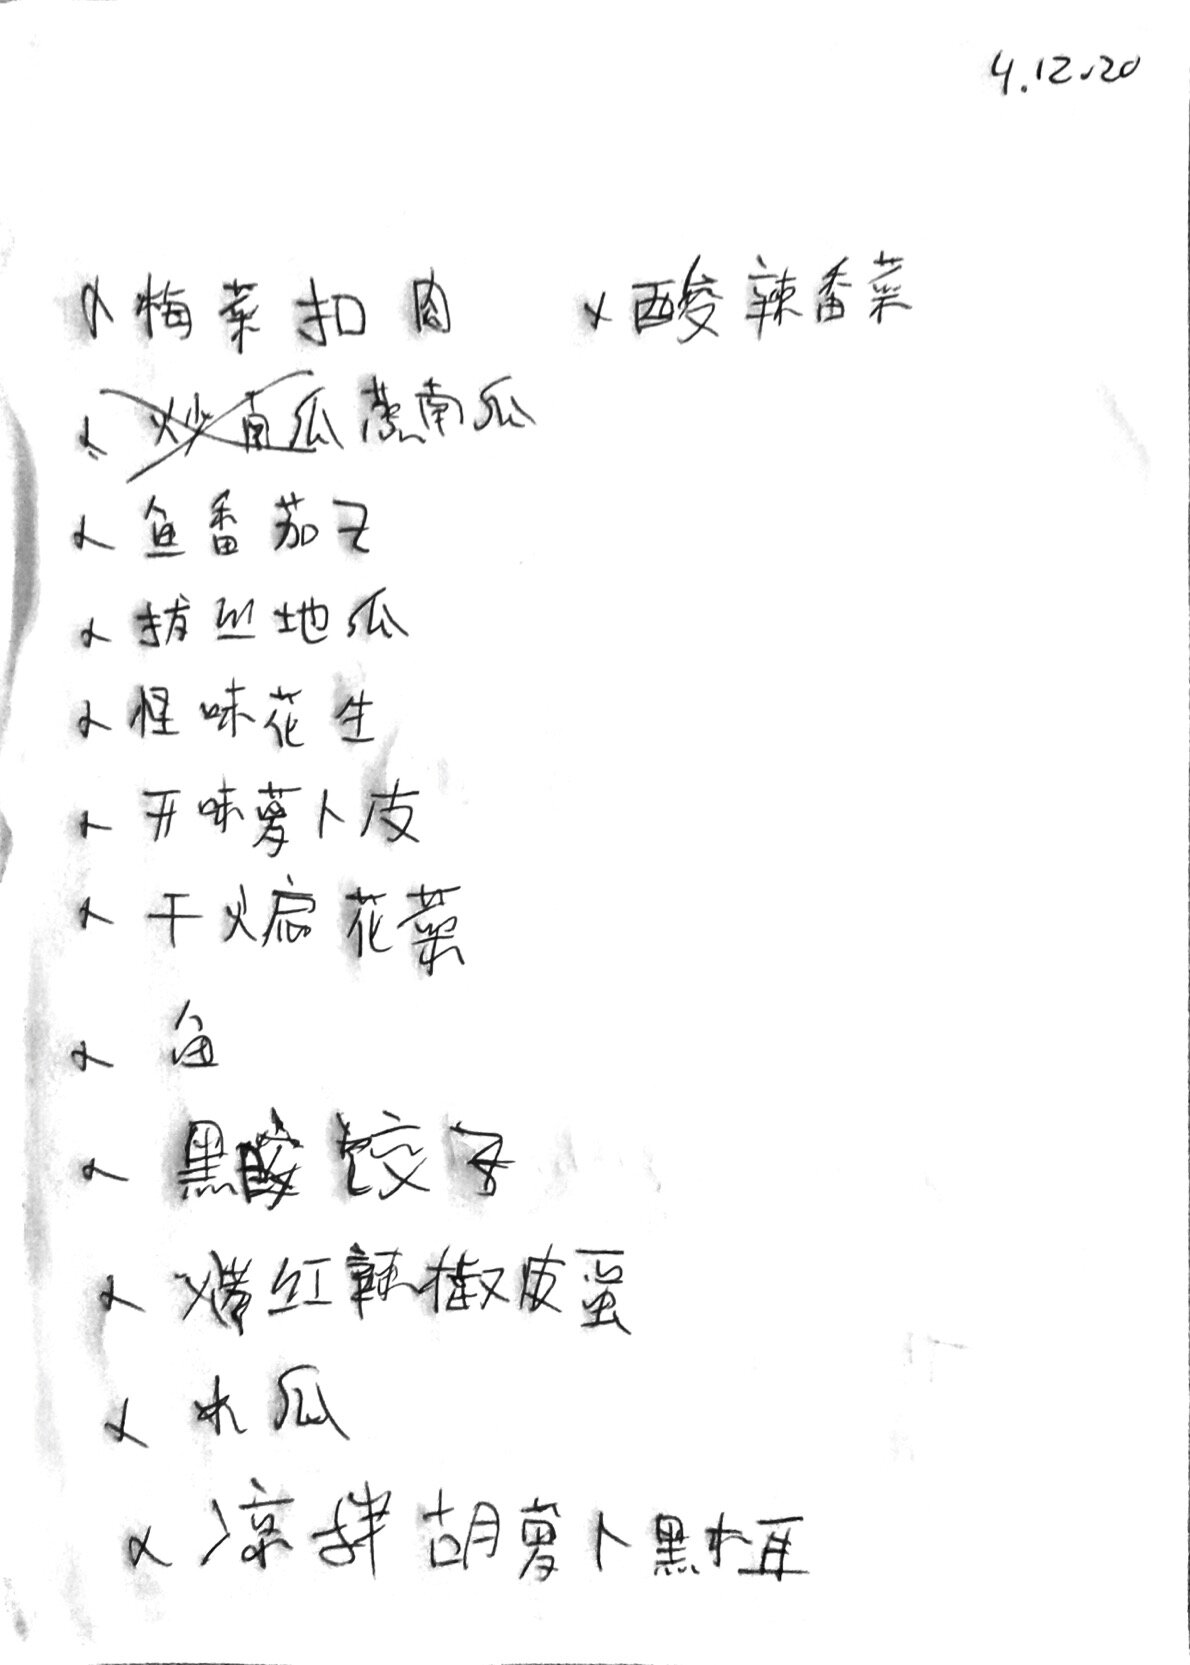 4.12.20
梅菜扣肉 x酸辣香菜
炒南瓜 蒸南瓜
鱼番茄
拔丝地瓜
怪味花生
开味萝卜皮
干煸花菜
鱼
黑 饺子
烤红辣椒皮蛋
木瓜
凉拌胡萝卜黑木耳